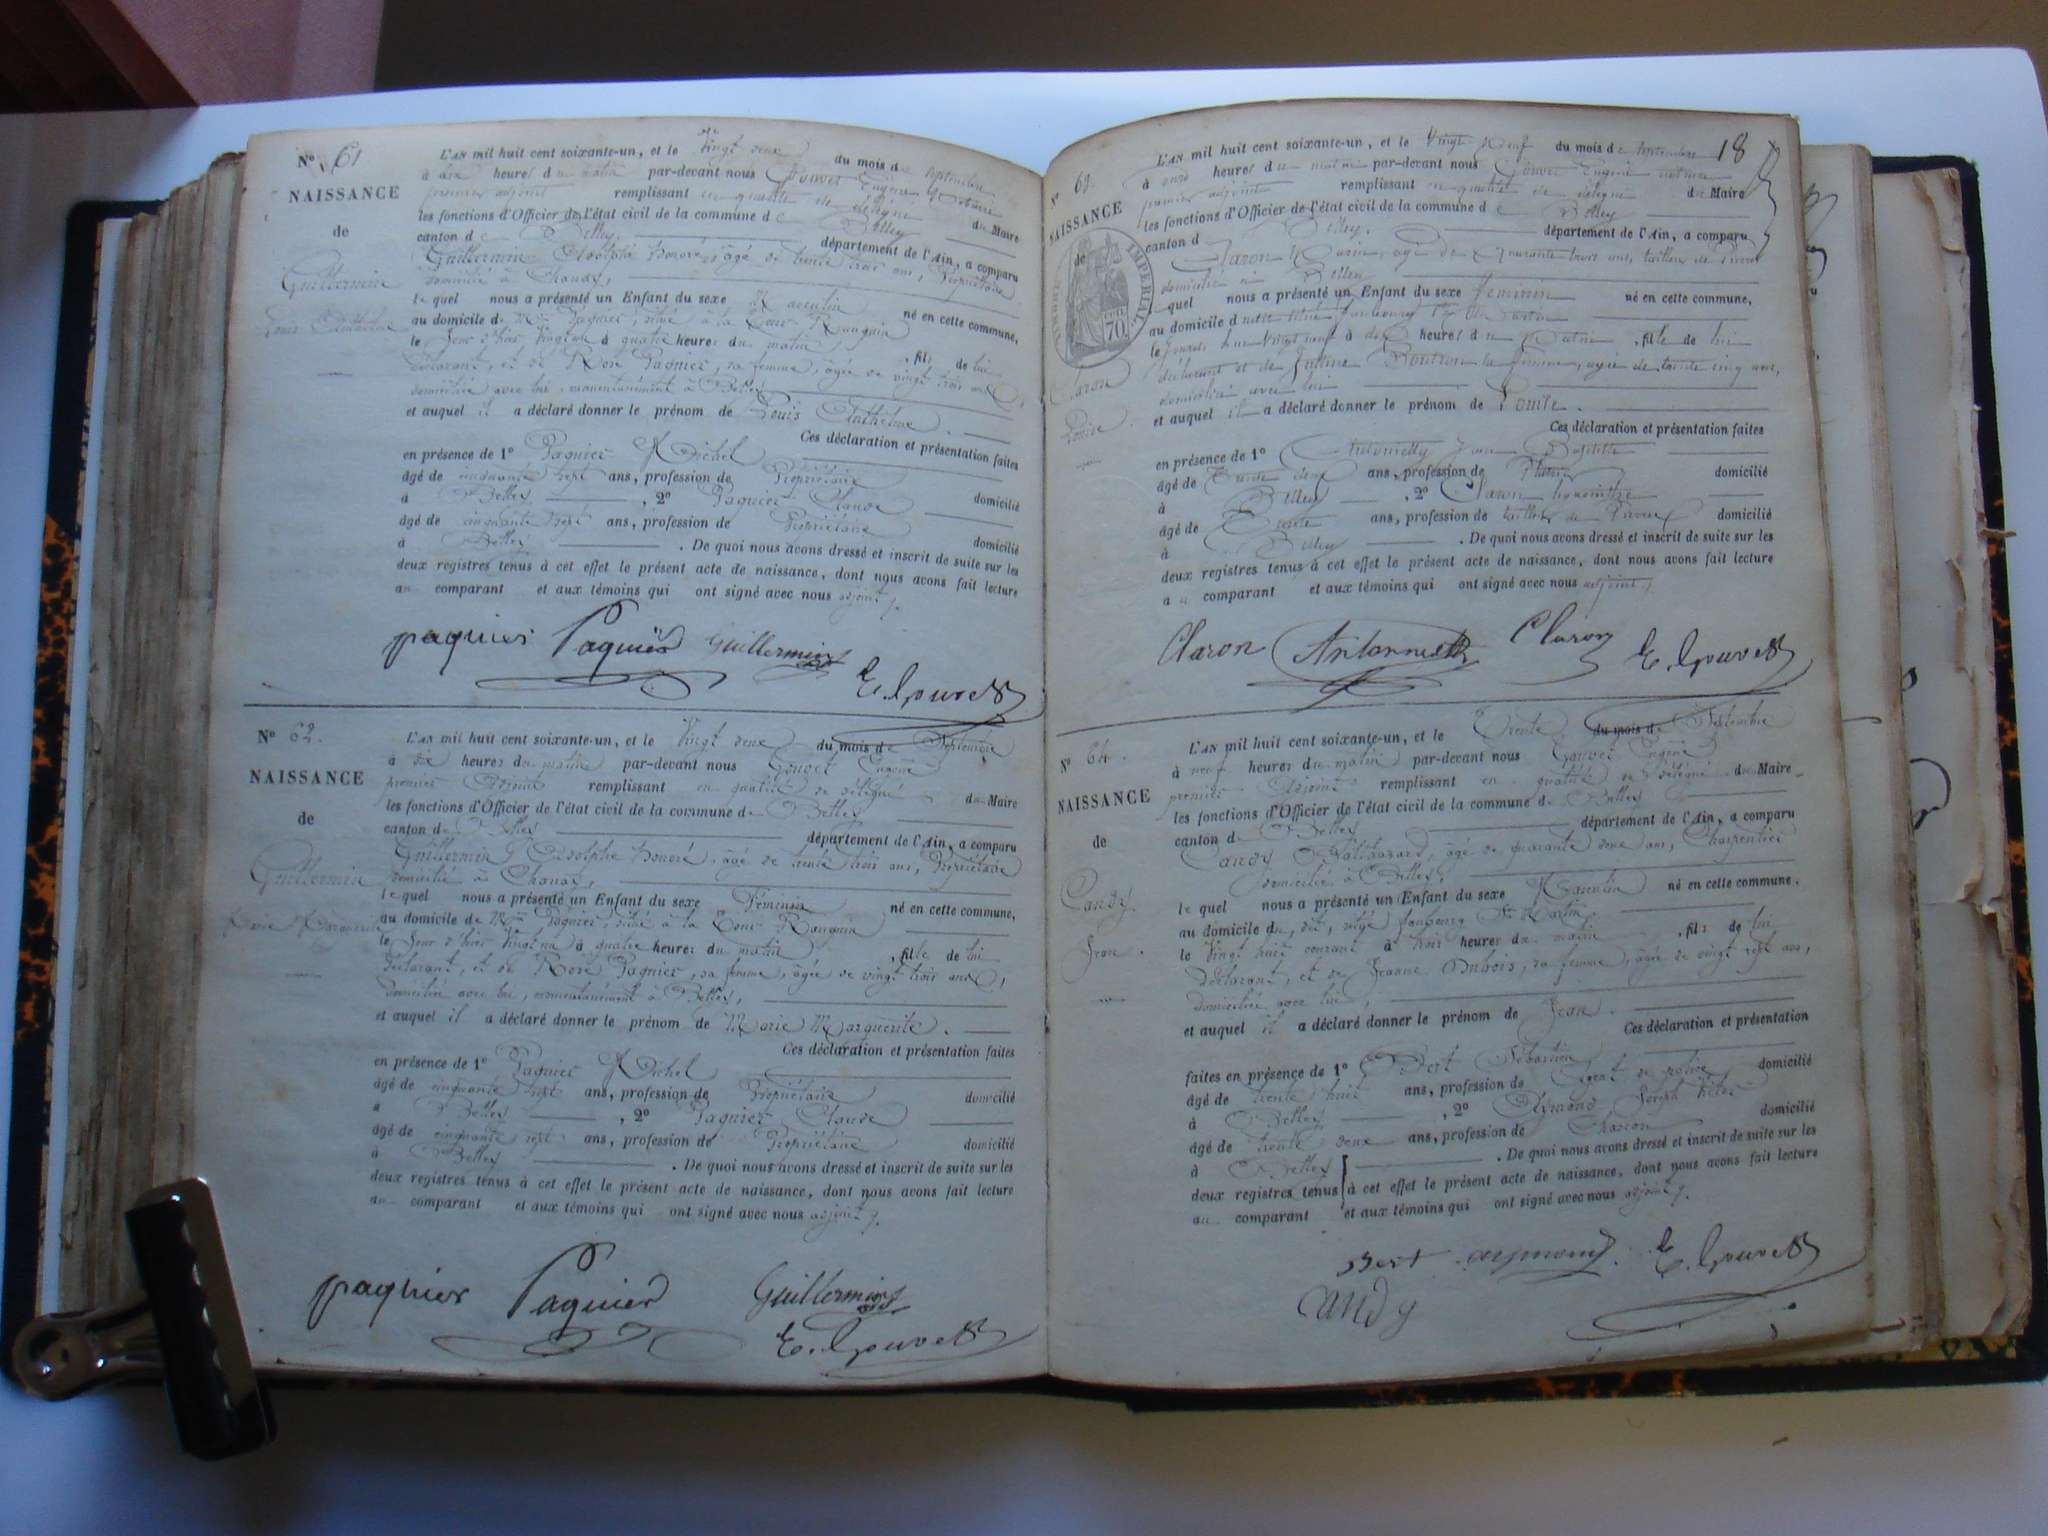 Nº 61
NAISSANCE
de
Guillermin
Louis Anthelme
L'AN mil huit cent soixante-un, et le vingt deux du mois de septembre
à dix heures du matin par-devant nous Gouvet Eugène, Notaire
premier adjoint remplissant en qualité de délégué du Maire
les fonctions d'Officier de l'état civil de la commune de Belley
canton de Belley, département de l'Ain, a comparu
Guillermin Adolphe honoré, âgé de trente trois ans, Propriétaire
domicilié à Chanay,
lequel nous a présenté un Enfant du sexe Masculin né en cette commune,
au domicile de Mr Paquier, situé à la Cour Rauquin
le jour d'hier vingt un à quatre heures du matin, fils de lui
déclarant, et de Rose Paquier, sa femme, âgée de vingt trois ans
domiciliée avec lui, momentanément à Belley
et auquel il a déclaré donner le prénom de Louis Anthelme.
Ces déclaration et présentation faites
en présence de 1º Paquier Michel
âgé de cinquante sept ans, profession de Propriétaire domicilié
à Belley, 2º Paquier Claude
âgé de cinquante sept ans, profession de Propriétaire domicilié
à Belley. De quoi nous avons dressé et inscrit de suite sur les
deux registres tenus à cet effet le présent acte de naissance, dont nous avons fait lecture
au comparant et aux témoins qui ont signé avec nous adjoint.
paquier Paquier Guillermin
E. Gouvet
Nº 62.
NAISSANCE
de
Guillermin
Marie Marguerite
L'AN mil huit cent soixante-un, et le Vingt deux du mois de Septembre
à dix heures du matin par-devant nous Gouvet Eugène
premier Adjoint remplissant en qualité de délégué du Maire
les fonctions d'Officier de l'état civil de la commune de Belley
canton de Belley département de l'Ain, a comparu
Guillermin Adolphe honoré, âgé de trente trois ans, Propriétaire
domicilié à Chanay,
lequel nous a présenté un Enfant du sexe Féminin né en cette commune,
au domicile de Mr Paquier, situé à la Cour Rauquin
le jour d'hier vingt un à quatre heures du matin, fille de lui
déclarant, et de Rose Paquier, sa femme, âgée de vingt trois ans,
domiciliée avec lui, momentanément à Belley,
et auquel il a déclaré donner le prénom de Marie Marguerite.
Ces déclaration et présentation faites
en présence de 1º Paquier Michel
âgé de cinquante sept ans, profession de Propriétaire domicilié
à Belley, 2º Paquier Claude
âgé de cinquante sept ans, profession de Propriétaire domicilié
à Belley. De quoi nous avons dressé et inscrit de suite sur les
deux registres tenus à cet effet le présent acte de naissance, dont nous avons fait lecture
au comparant et aux témoins qui ont signé avec nous adjoint.
paquier Paquier Guillermin
E. Gouvet
18
Nº 63.
NAISSANCE
de
TIMBRE IMPERIAL
70
Claron
Louise.
L'AN mil huit cent soixante-un, et le Vingt Neuf du mois de septembre
à onze heures du matin par-devant nous Gouvet Eugène notaire
premier adjoint remplissant en qualité de délégué du Maire
les fonctions d'Officier de l'état civil de la commune de Belley
canton d Belley. département de l'Ain, a comparu
Claron Marin, âgé de Quarante trois ans, tailleur de Pierres
domicilié à Belley
lequel nous a présenté un Enfant du sexe féminin né en cette commune,
au domicile situé faubourg St Martin
le jour vingt neuf à dix heures du matin, fille de lui
déclarant et de Justine Bouvron sa femme, âgée de trente cinq ans,
domiciliée avec lui
et auquel il a déclaré donner le prénom de Louise.
Ces déclaration et présentation faites
en présence de 1º Antonietty Jean Baptiste
âgé de Trente deux ans, profession de Platrier domicilié
à Belley, 2º Claron
âgé de Trente ans, profession de tailleur de Pierres domicilié
à Belley. De quoi nous avons dressé et inscrit de suite sur les
deux registres tenus à cet effet le présent acte de naissance, dont nous avons fait lecture
au comparant et aux témoins qui ont signé avec nous adjoint.
Claron Antonietty Claron E. Gouvet
Nº 64.
NAISSANCE
de
Candy
Jean.
L'AN mil huit cent soixante-un, et le Trente du mois de Septembre
à neuf heures du matin par-devant nous Gouvet Eugène
premier Adjoint remplissant en qualité de délégué du Maire
les fonctions d'Officier de l'état civil de la commune de Belley
canton de Belley département de l'Ain, a comparu
Candy Balthazard, âgé de quarante deux ans, Charpentier
domicilié à Belley,
lequel nous a présenté un Enfant du sexe Masculin né en cette commune,
au domicile du, dit, situé faubourg St Martin
le Vingt huit courant à trois heures du matin, fils de lui
déclarant, et de Jeanne Dubois, sa femme, âgée de vingt sept ans,
domiciliée avec lui,
et auquel il a déclaré donner le prénom de Jean.
Ces déclaration et présentation
faites en présence de 1º Bert Sébastien
âgé de trente huit ans, profession de Agent de police, domicilié
à Belley, 2º Aymond Joseph
âgé de trente deux ans, profession de Charron domicilié
à Belley. De quoi nous avons dressé et inscrit de suite sur les
deux registres tenus à cet effet le présent acte de naissance, dont nous avons fait lecture
au comparant et aux témoins qui ont signé avec nous adjoint.
Bert aymond E. Gouvet
Candy